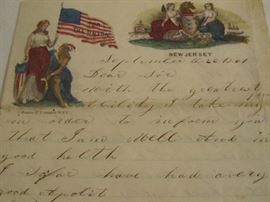 NEW JERSEY
September
Dear Sir
With the greatest
I take my
in order to inform you
that I am Well And in
good helth
I So far have had a very
good Apotit